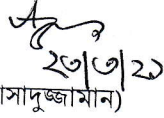 ২৩|৩|২১
সাদুজ্জামান)